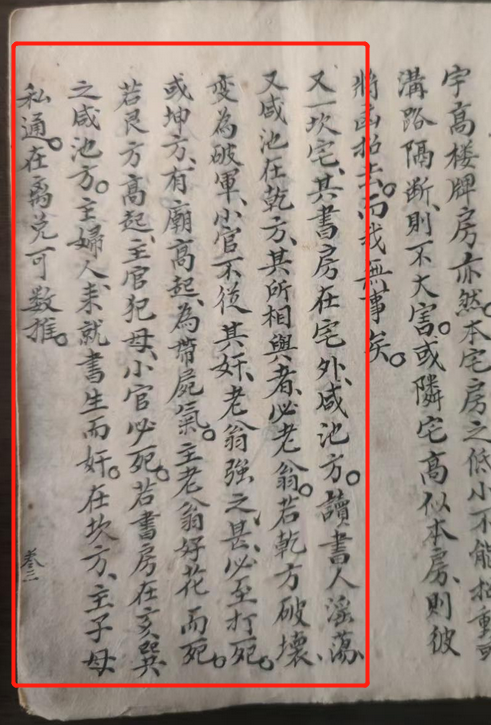 宇高楼牌房亦然。本宅房之低小不能招重
溝路隔断、則不大害。或隣宅高似本房、則彼
將凶招去。而我無事矣。
又一坎宅、其書房在宅外、咸池方。讀書人淫蕩、
又咸池在乾方、其所相與者、必老翁。若乾方破壞、
变為破軍、小官不從其奸、老翁強之甚、必至打死。
或坤方、有廟高起、為帶屍氣。主老翁好花而死。
若艮方高起、主官犯母、小官必死。若書房在亥巽
之咸池方。主婦人、来就書生而奸。在坎方、主子母
私通。在离兑可数推。
卷三